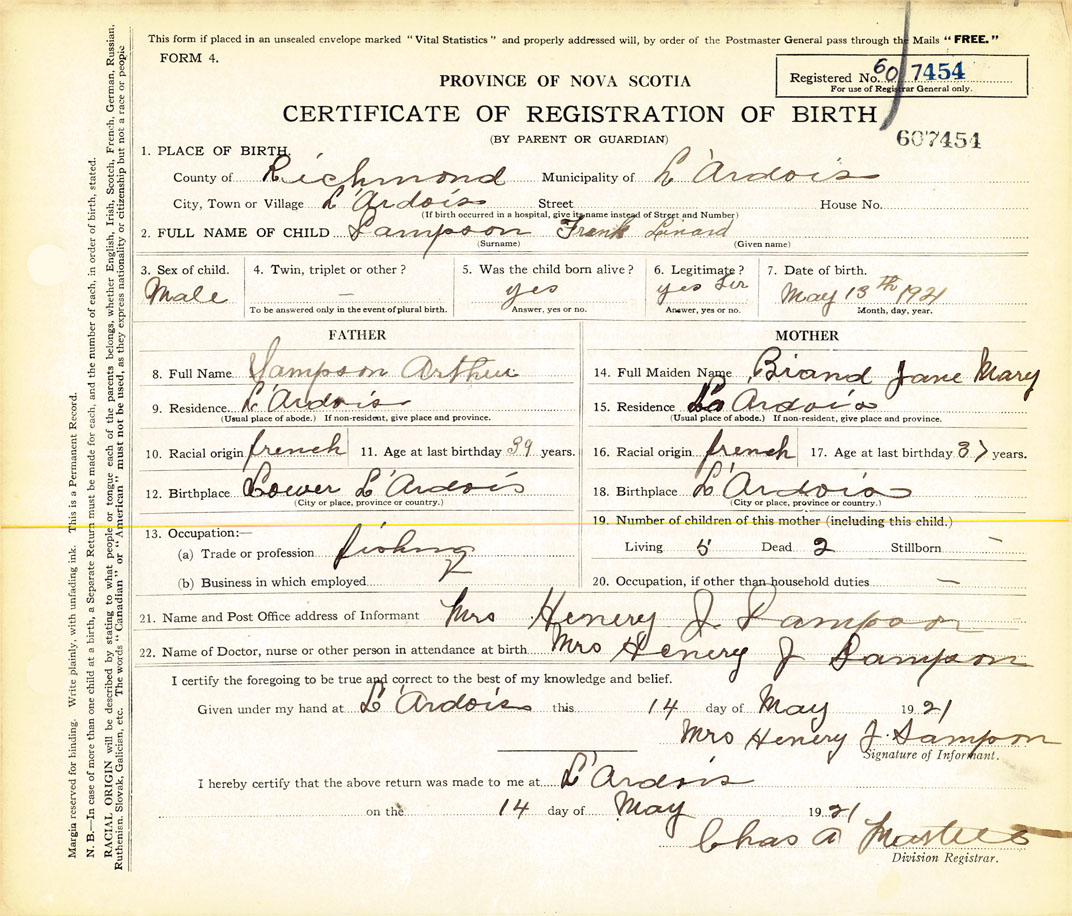 This form if placed in an unsealed envelope marked "Vital Statistics" and properly addressed will, by order of the Postmaster General pass through the Mails "FREE."
FORM 4.
Registered No. 60 7454
For use of Registrar General only.
PROVINCE OF NOVA SCOTIA
CERTIFICATE OF REGISTRATION OF BIRTH
(BY PARENT OR GUARDIAN)
607454
1. PLACE OF BIRTH,
County of Richmond Municipality of L'Ardois
City, Town or Village L'Ardois Street House No.
(If birth occurred in a hospital, give its name instead of Street and Number)
2. FULL NAME OF CHILD Sampson Frank Linard
(Surname) (Given name)
3. Sex of child. 4. Twin, triplet or other? 5. Was the child born alive? 6. Legitimate? 7. Date of birth.
Male — yes yes Sir May 13th 1921
To be answered only in the event of plural birth. Answer, yes or no. Answer, yes or no. Month, day, year.
FATHER
8. Full Name Sampson Arthur
9. Residence L'Ardois
(Usual place of abode.) If non-resident, give place and province.
10. Racial origin french 11. Age at last birthday 39 years.
12. Birthplace Lower L'Ardois
(City or place, province or country.)
13. Occupation:—
(a) Trade or profession fishing
(b) Business in which employed
MOTHER
14. Full Maiden Name Briand Jane Mary
15. Residence L'Ardois
(Usual place of abode.) If non-resident, give place and province.
16. Racial origin french 17. Age at last birthday 37 years.
18. Birthplace L'Ardois
(City or place, province or country.)
19. Number of children of this mother (including this child.)
Living 5 Dead 2 Stillborn —
20. Occupation, if other than household duties —
21. Name and Post Office address of Informant Mrs Henery J. Sampson
22. Name of Doctor, nurse or other person in attendance at birth Mrs Henery J Sampson
I certify the foregoing to be true and correct to the best of my knowledge and belief.
Given under my hand at L'Ardois this 14 day of May 1921
Mrs Henery J. Sampson
Signature of Informant.
I hereby certify that the above return was made to me at L'Ardois
on the 14 day of May 1921
Chas A
Division Registrar.
Margin reserved for binding. Write plainly, with unfading ink. This is a Permanent Record.
N. B.—In case of more than one child at a birth, a Separate Return must be made for each, and the number of each, in order of birth, stated.
RACIAL ORIGIN will be described by stating to what people or tongue each of the parents belongs, whether English, Irish, Scotch, French, German, Russian,
Ruthenian, Slovak, Galician, etc. The words "Canadian" or "American" must not be used, as they express nationality or citizenship but not a race or people